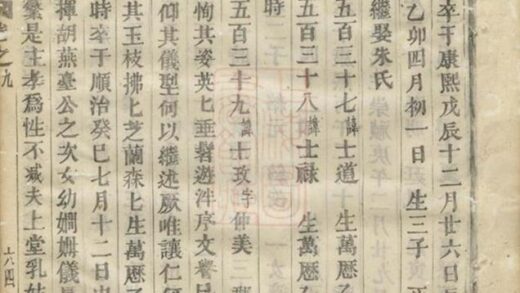 卒于康熙戊辰十二月廿六日
乙卯四月初一日 生三子 正
繼娶朱氏
五百三十七 諱士道 生萬曆
五百三十八 諱士祿 生萬曆乙
時 二子
五百三十九 諱士玫字仲美三
恂其姿英匕垂髫遊泮序文譽日
仰其儀型何以繼述厥唯讓仁
其玉枝拂匕芝蘭森匕生萬曆乙
時卒于順治癸巳七月十二日
揮胡燕臺公之次女幼嫻姆儀
繁是主孝爲性不減夫上堂乳姑
卷之九 上八四